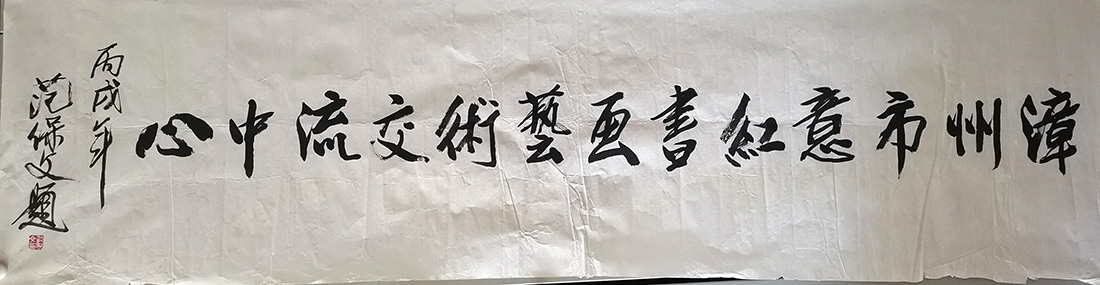 漳州市意红書画藝術交流中心
丙戌年
范保文題